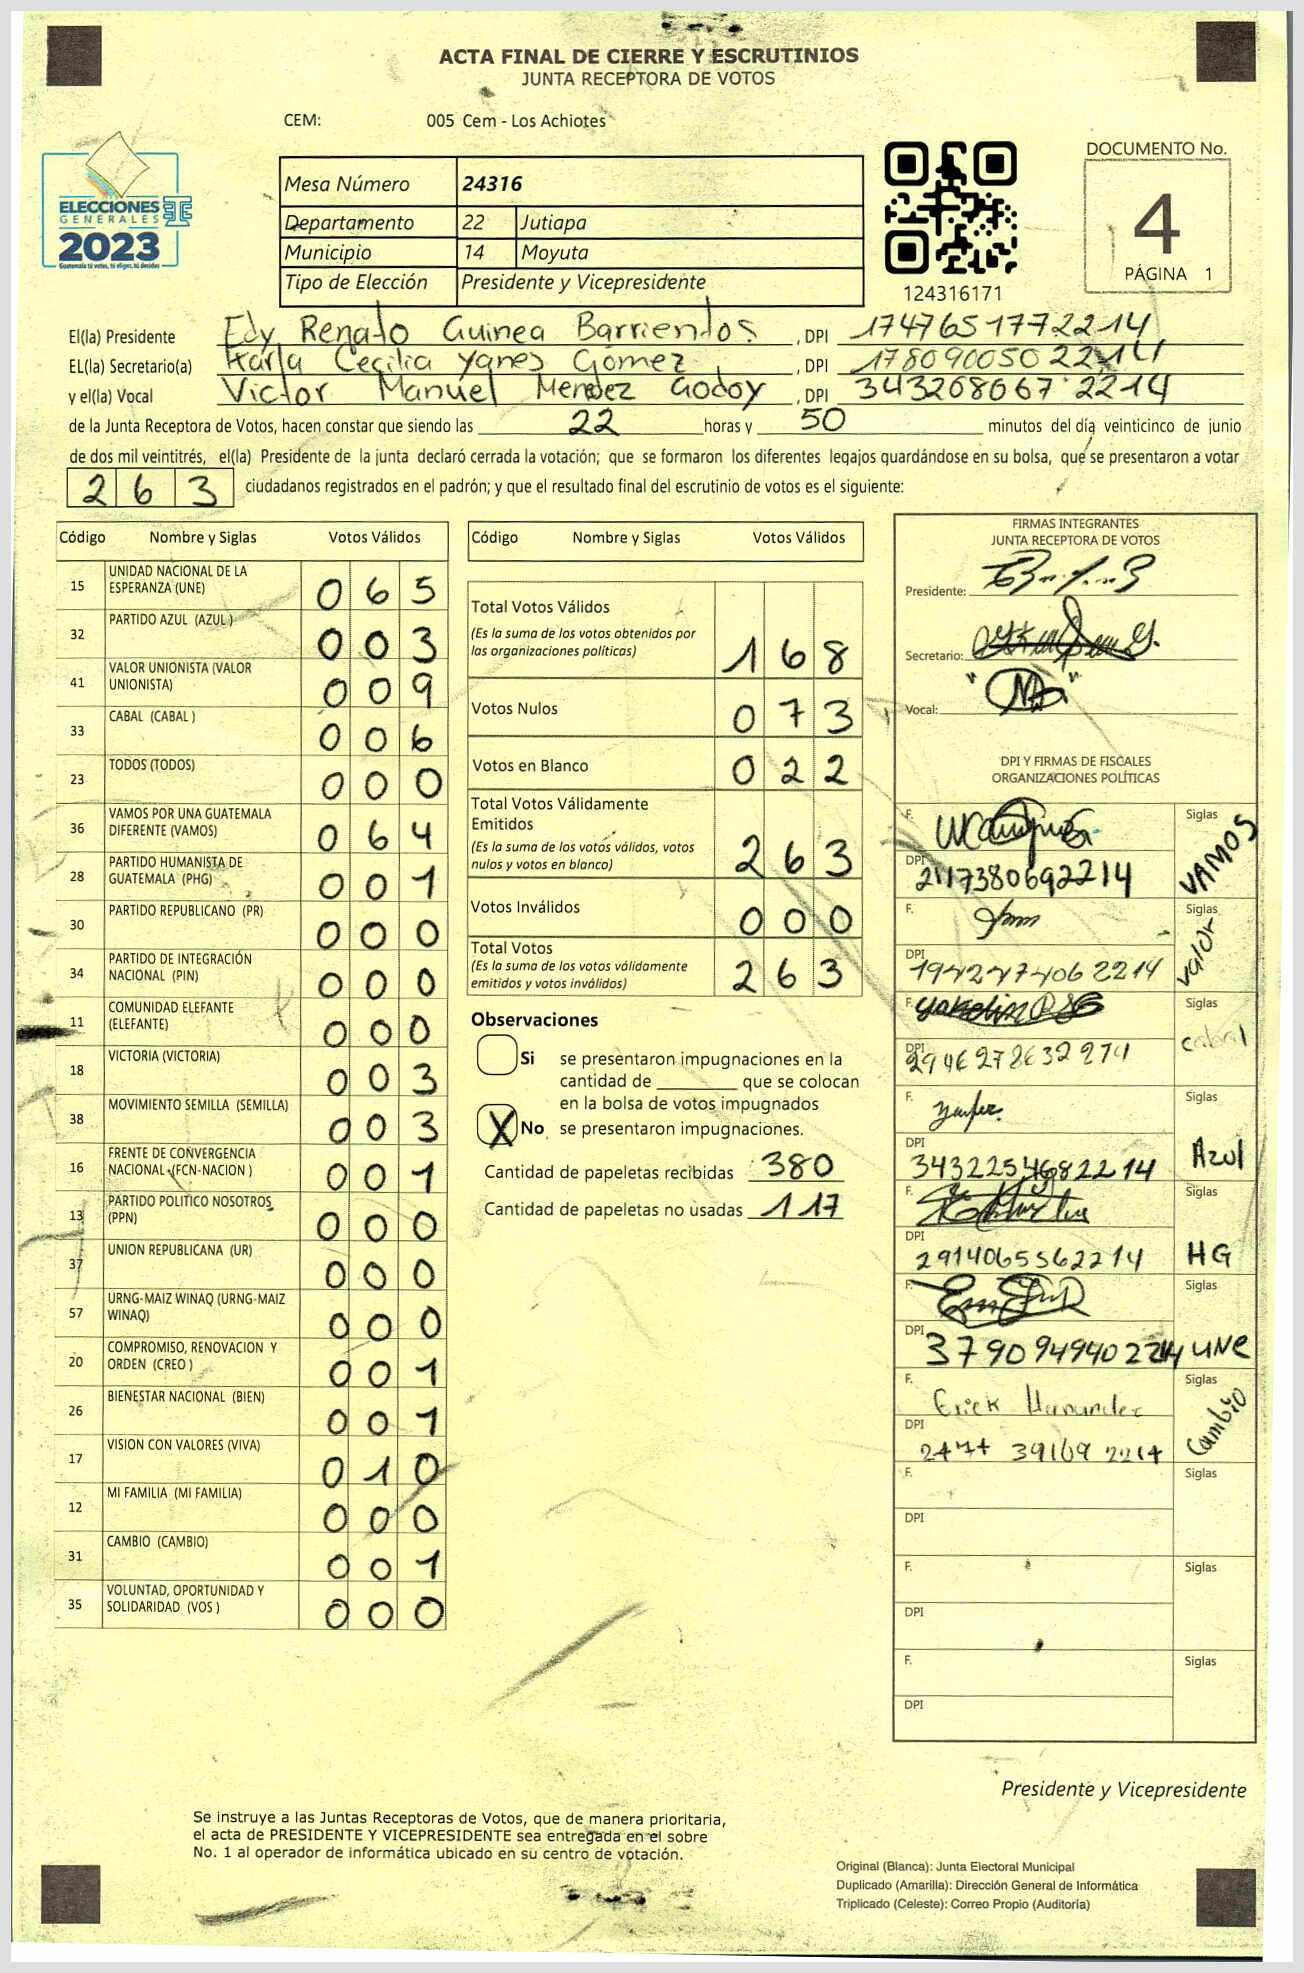 ACTA FINAL DE CIERRE Y ESCRUTINIOS
JUNTA RECEPTORA DE VOTOS
CEM: 005 Cem - Los Achiotes
ELECCIONES
GENERALES
2023
Guatemala tú votas, tú eliges, tú decides
Mesa Número 24316
Departamento 22 Jutiapa
Municipio 14 Moyuta
Tipo de Elección Presidente y Vicepresidente
124316171
DOCUMENTO No.
4
PÁGINA 1
El(la) Presidente Edy Renato Guinea Barrientos. , DPI 1747651772214
EL(la) Secretario(a) Karla Cecilia Yanes Gómez , DPI 1780900502214
y el(la) Vocal Victor Manuel Mendez Godoy , DPI 3432680672214
de la Junta Receptora de Votos, hacen constar que siendo las 22 horas y 50 minutos del día veinticinco de junio
de dos mil veintitrés, el(la) Presidente de la junta declaró cerrada la votación; que se formaron los diferentes legajos guardándose en su bolsa, que se presentaron a votar
263 ciudadanos registrados en el padrón; y que el resultado final del escrutinio de votos es el siguiente:
Código Nombre y Siglas Votos Válidos
15 UNIDAD NACIONAL DE LA ESPERANZA (UNE) 065
32 PARTIDO AZUL (AZUL ) 003
41 VALOR UNIONISTA (VALOR UNIONISTA) 009
33 CABAL (CABAL ) 006
23 TODOS (TODOS) 000
36 VAMOS POR UNA GUATEMALA DIFERENTE (VAMOS) 064
28 PARTIDO HUMANISTA DE GUATEMALA (PHG) 001
30 PARTIDO REPUBLICANO (PR) 000
34 PARTIDO DE INTEGRACIÓN NACIONAL (PIN) 000
11 COMUNIDAD ELEFANTE (ELEFANTE) 000
18 VICTORIA (VICTORIA) 003
38 MOVIMIENTO SEMILLA (SEMILLA) 003
16 FRENTE DE CONVERGENCIA NACIONAL (FCN-NACION ) 001
13 PARTIDO POLITICO NOSOTROS (PPN) 000
37 UNION REPUBLICANA (UR) 000
57 URNG-MAIZ WINAQ (URNG-MAIZ WINAQ) 000
20 COMPROMISO, RENOVACION Y ORDEN (CREO ) 001
26 BIENESTAR NACIONAL (BIEN) 001
17 VISION CON VALORES (VIVA) 010
12 MI FAMILIA (MI FAMILIA) 000
31 CAMBIO (CAMBIO) 001
35 VOLUNTAD, OPORTUNIDAD Y SOLIDARIDAD (VOS ) 000
Código Nombre y Siglas Votos Válidos
Total Votos Válidos
(Es la suma de los votos obtenidos por las organizaciones políticas) 168
Votos Nulos 073
Votos en Blanco 022
Total Votos Válidamente Emitidos
(Es la suma de los votos válidos, votos nulos y votos en blanco) 263
Votos Inválidos 000
Total Votos
(Es la suma de los votos válidamente emitidos y votos inválidos) 263
Observaciones
Si se presentaron impugnaciones en la
cantidad de ________ que se colocan
en la bolsa de votos impugnados
X No se presentaron impugnaciones.
Cantidad de papeletas recibidas 380
Cantidad de papeletas no usadas 117
FIRMAS INTEGRANTES
JUNTA RECEPTORA DE VOTOS
Presidente:
Secretario:
Vocal:
DPI Y FIRMAS DE FISCALES
ORGANIZACIONES POLÍTICAS
F. Siglas VAMOS
DPI 2117380692214
F. Siglas Valor
DPI
F. Siglas cabal
DPI
F. Siglas Azul
DPI 3432254682214
F. Siglas HG
DPI 2914065562214
F. Siglas UNE
DPI 3790949402214
F. Erick Hernandez Siglas Cambio
DPI 2474 39169 2214
F. Siglas
DPI
F. Siglas
DPI
F. Siglas
DPI
Presidente y Vicepresidente
Se instruye a las Juntas Receptoras de Votos, que de manera prioritaria,
el acta de PRESIDENTE Y VICEPRESIDENTE sea entregada en el sobre
No. 1 al operador de informática ubicado en su centro de votación.
Original (Blanca): Junta Electoral Municipal
Duplicado (Amarilla): Dirección General de Informática
Triplicado (Celeste): Correo Propio (Auditoría)